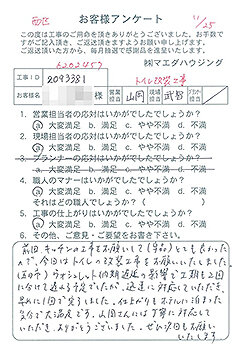 西区
11/25
お客様アンケート
この度は工事のご用命を頂きありがとうございました。お手数で
すがご記入頂き、ご返送頂きますようお願い申し上げます。
ご返送頂いた方から、毎月抽選で感謝品を進呈いたします。
6202457
㈱マエダハウジング
工事ID 2093381 トイレ改装工事
様 営業担当 山岡 現場担当 武智 プランナー担当
1. 営業担当者の応対はいかがでしたでしょうか?
a 大変満足 b. 満足 c. やや不満 d. 不満
2. 現場担当者の応対はいかがでしたでしょうか?
a 大変満足 b. 満足 c. やや不満 d. 不満
3. プランナーの応対はいかがでしたでしょうか?
a. 大変満足 b. 満足 c. やや不満 d. 不満
4. 職人のマナーはいかがでしたでしょうか?
a 大変満足 b. 満足 c. やや不満 d. 不満
それはどの職人でしょうか?( )
5. 工事の仕上がりはいかがでしたでしょうか?
a 大変満足 b. 満足 c. やや不満 d. 不満
6. その他、ご意見・ご要望をお聞かせ下さい。
前回キッチンの工事をお願いして(9年前)とても良かった
ので、今回はトイレの改装工事をお願いいたしました。
ウォシュレット納期遅延の影響で工期も2回
に分けて返る予定でしたが、迅速に対応していただき、
早めに1回で完了しました。仕上がりもホテルに泊まった
気分で大満足です。山岡さんには丁寧に対応して
いただき、ありがとうございました。ぜひ次回もお願い
いたします